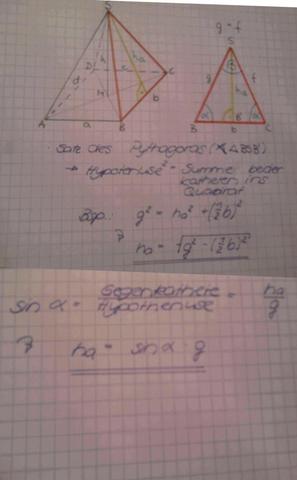 S
g = f
S
g
f
h
ha
ha
D
c
C
d
M
b
A
a
B
α
α
B
b
C
Satz des Pythagoras
→ Hypotenuse² = Summe beider
Katheten ins
Quadrat
Bsp.: g² = ha² + (½b)²
ha = √g² - (½b)²
sin α = Gegenkathete / Hypothenuse = ha / g
ha = sin α · g